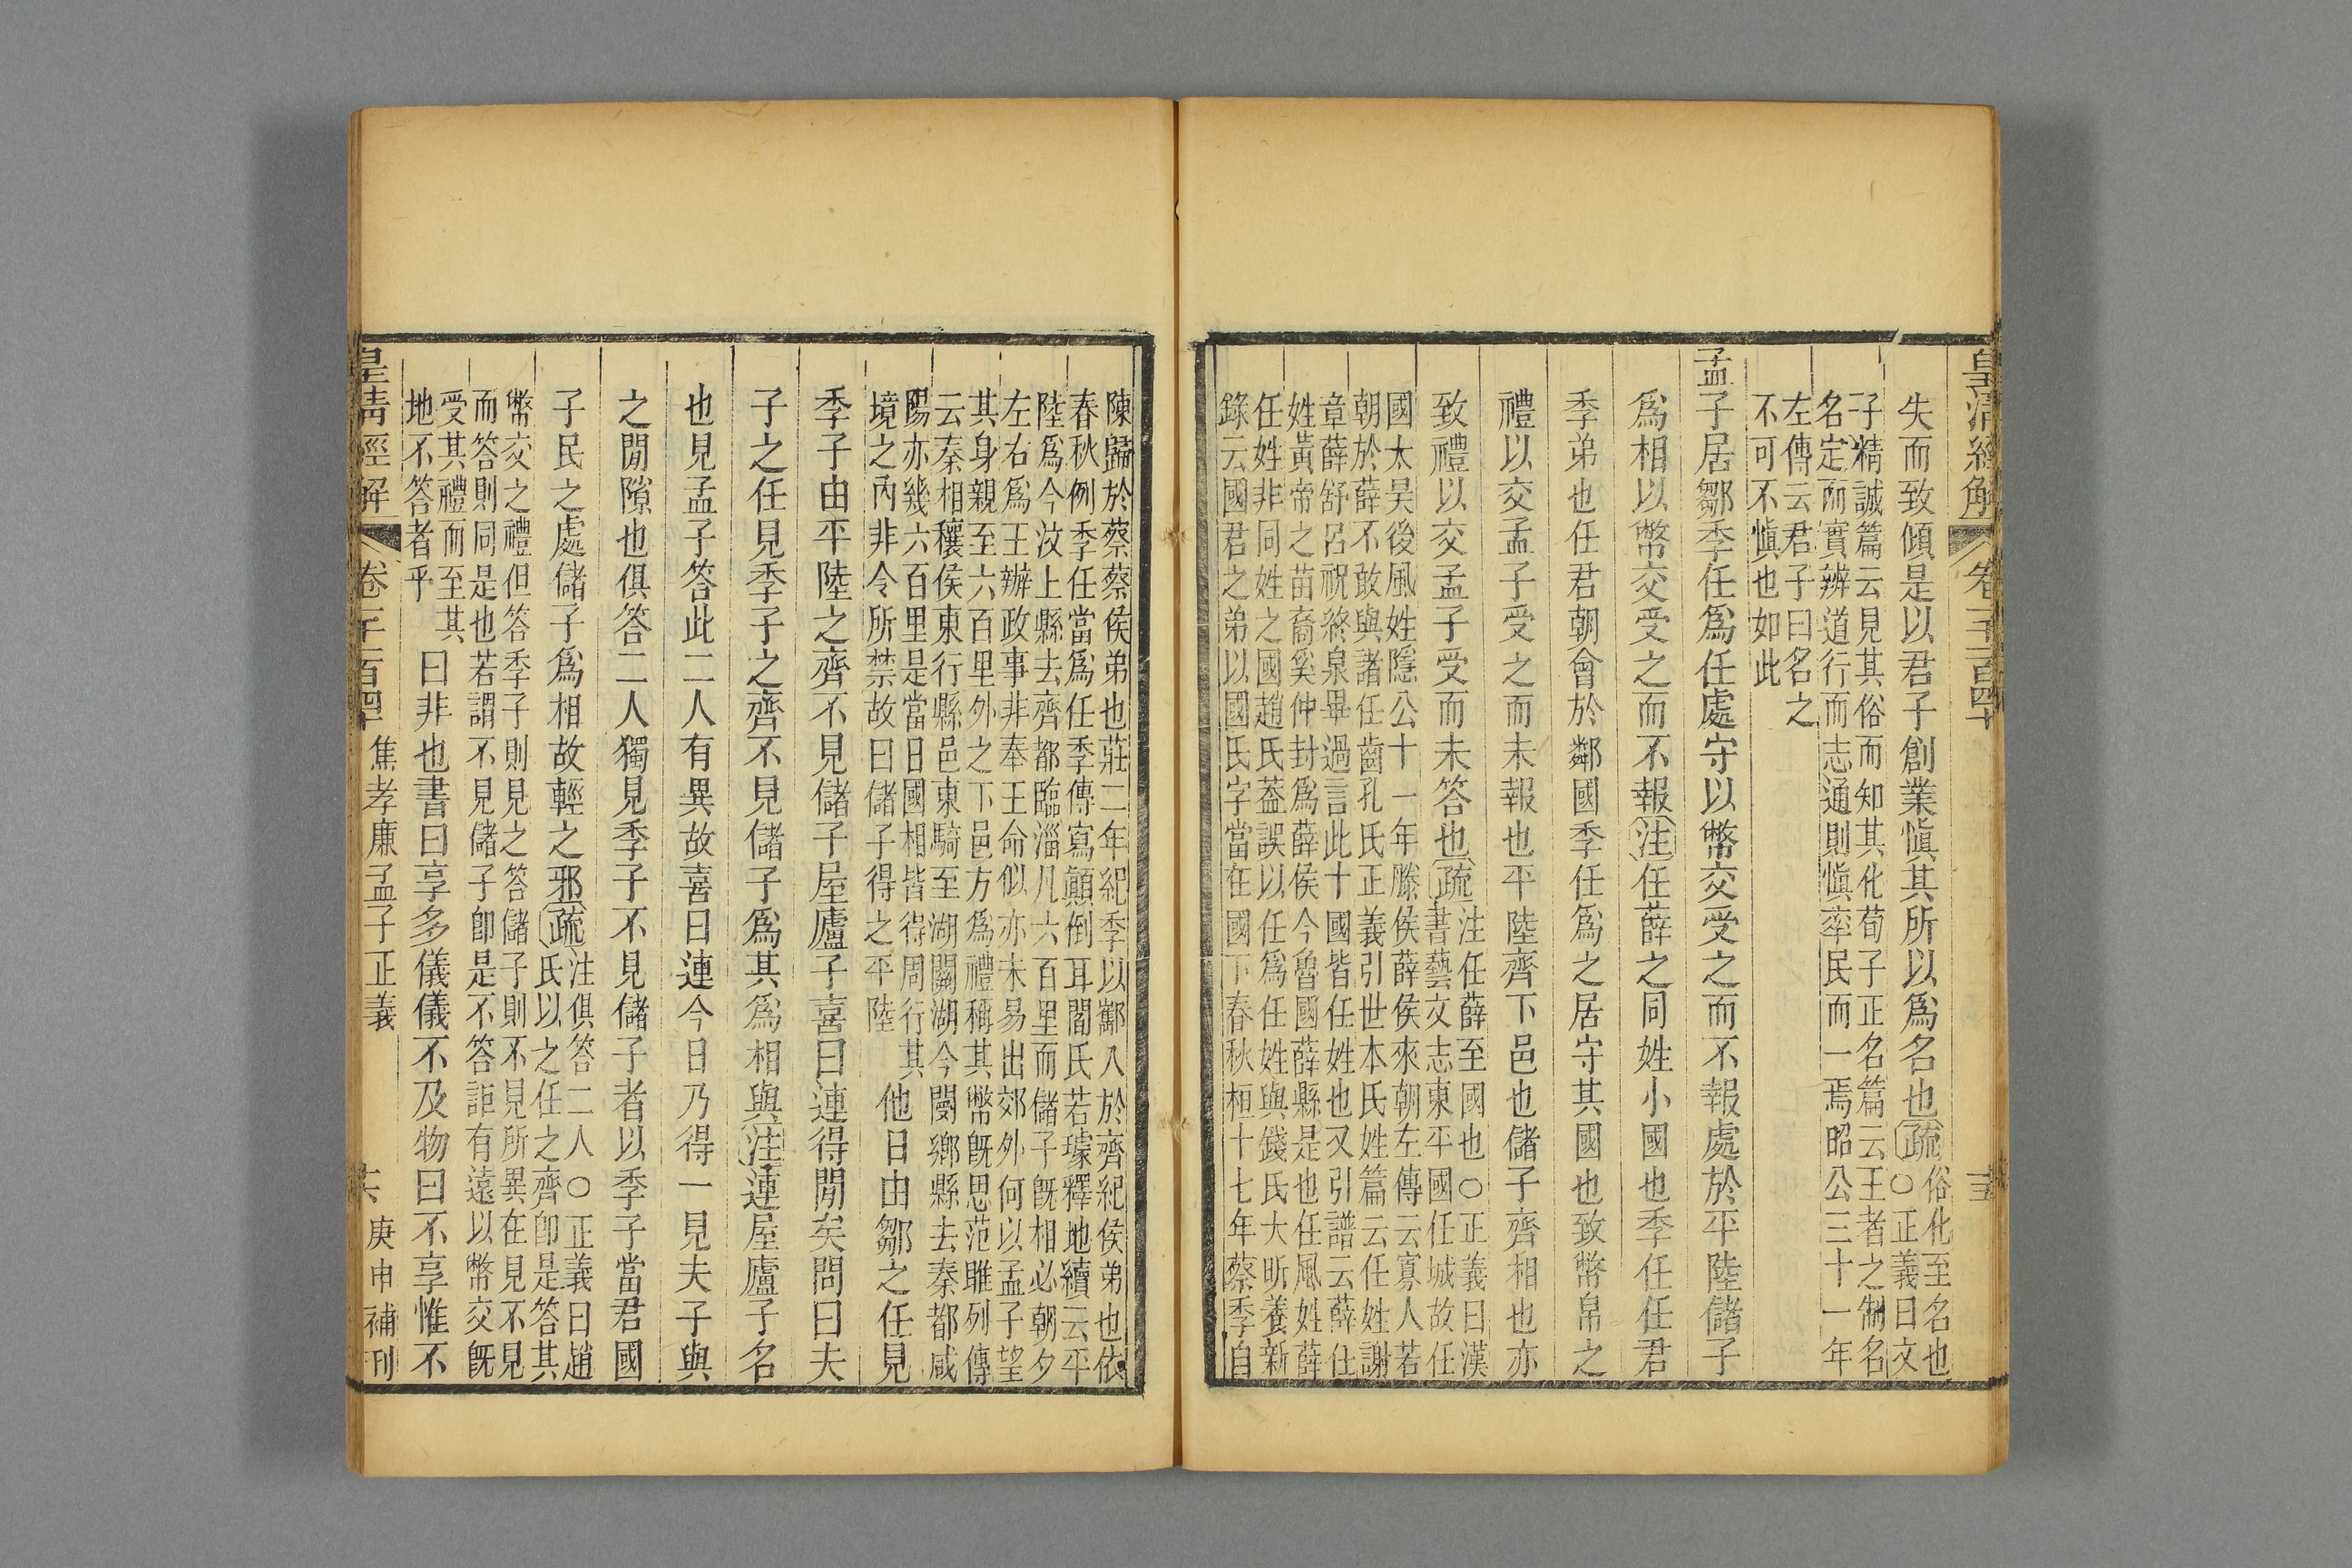 皇清經解 卷千一百四十 十五
失而致傾是以君子創業愼其所以爲名也疏俗化至名也
○正義曰文
子精誠篇云見其俗而知其化荀子正名篇云王者之制名
名定而實辨道行而志通則愼率民而一焉昭公三十一年
左傳云君子曰名之
不可不愼也如此
孟子居鄒季任爲任處守以幣交受之而不報處於平陸儲子
爲相以幣交受之而不報注任薛之同姓小國也季任任君
季弟也任君朝會於鄰國季任爲之居守其國也致幣帛之
禮以交孟子受之而未報也平陸齊下邑也儲子齊相也亦
致禮以交孟子受而未答也疏注任薛至國也○正義曰漢
書藝文志東平國任城故任
國太昊後風姓隱公十一年滕侯薛侯來朝左傳云寡人若
朝於薛不敢與諸任齒孔氏正義引世本氏姓篇云任姓謝
章薛舒呂祝終泉畢過言此十國皆任姓也又引譜云薛仕
姓黃帝之苗裔奚仲封爲薛侯今魯國薛縣是也任風姓薛
任姓非同姓之國趙氏葢誤以任爲任姓與錢氏大昕養新
錄云國君之弟以國氏字當在國下春秋桓十七年蔡季自
陳歸於蔡蔡侯弟也莊二年紀季以酅入於齊紀侯弟也依
春秋例季任當爲任季傳寫顚倒耳閻氏若璩釋地續云平
陸爲今汶上縣去齊都臨淄凡六百里而儲子旣相必朝夕
左右爲王辦政事非奉王命似亦未易出郊外何以孟子望
其身親至六百里外之下邑方爲禮稱其幣旣思范雎列傳
云秦相穰侯東行縣邑東騎至湖關湖今閿鄕縣去秦都咸
陽亦幾六百里是當日國相皆得周行其
境之內非令所禁故曰儲子得之平陸
他日由鄒之任見
季子由平陸之齊不見儲子屋廬子喜曰連得閒矣問曰夫
子之任見季子之齊不見儲子爲其爲相與注連屋廬子名
也見孟子答此二人有異故喜曰連今日乃得一見夫子與
之閒隙也俱答二人獨見季子不見儲子者以季子當君國
子民之處儲子爲相故輕之邪疏注俱答二人○正義曰趙
氏以之任之齊卽是答其
幣交之禮但答季子則見之答儲子則不見所異在見不見
而答則同是也若謂不見儲子卽是不答詎有遠以幣交旣
受其禮而至其
地不答者乎
曰非也書曰享多儀儀不及物曰不享惟不
皇清經解 卷千一百四十 焦孝廉孟子正義 十六 庚申補刊